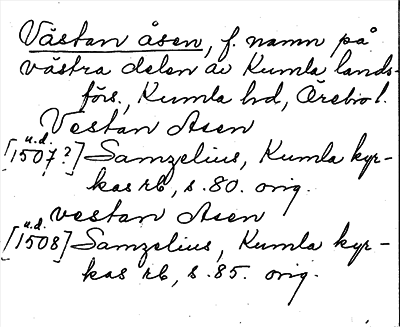 Västan åsen, f. namn på
västra delen av Kumla lands-
förs., Kumla hd, Örebro l.
Vestan Asen
u.d.
[1507?] Samzelius, Kumla kyr-
kas rb, s. 80. orig.
vestan Asen
u.d.
[1508] Samzelius, Kumla kyr-
kas rb, s. 85. orig.